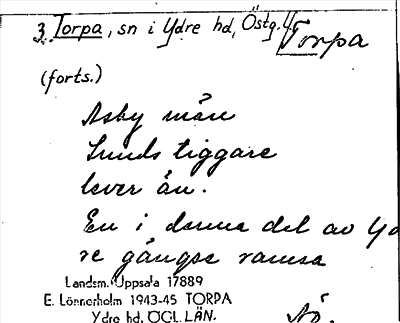 3. Torpa, sn i Ydre hd, Östg. l.
Torpa
(forts.)
Asby mån
Sunds tiggare
lever än.
En i denna del av Yd
re gångse ramsa
Landsm. Uppsala 17889
E. Lönnerholm 1943-45 TORPA
Ydre hd, ÖGL. LÄN.
Nö.